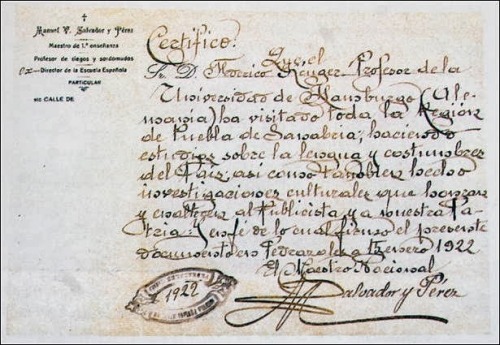 Manuel V. Salvador y Pérez
Maestro de 1.ª enseñanza
Profesor de ciegos y sordomudos
Ex-Director de la Escuela Española
PARTICULAR
CALLE DE
Certifico: Que el
Sr. D. Krüger Profesor de la
Universidad de Hamburgo (Ale-
mania) ha visitado toda la Región
de Puebla de Sanabria; haciendo
estudios sobre la lengua y costumbres
del País; asi como tambien hecho
investigaciones culturales que honran
y enaltecen al Publicista y a nuestra Pa-
tria. Y en fe de lo cual firmo el presente
documento en Pedrazales a Febrero 1922
El Maestro Nacional
Salvador y Pérez
1922